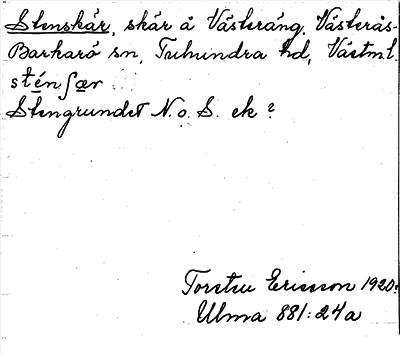 Stenskär, skär å Västeräng, Västerås-
Barkarö sn, Tuhundra hd, Västml.
sténʃær
Stengrundet N. o. S. ek?
Torsten Ericsson 1920.
Ulma 881:24a